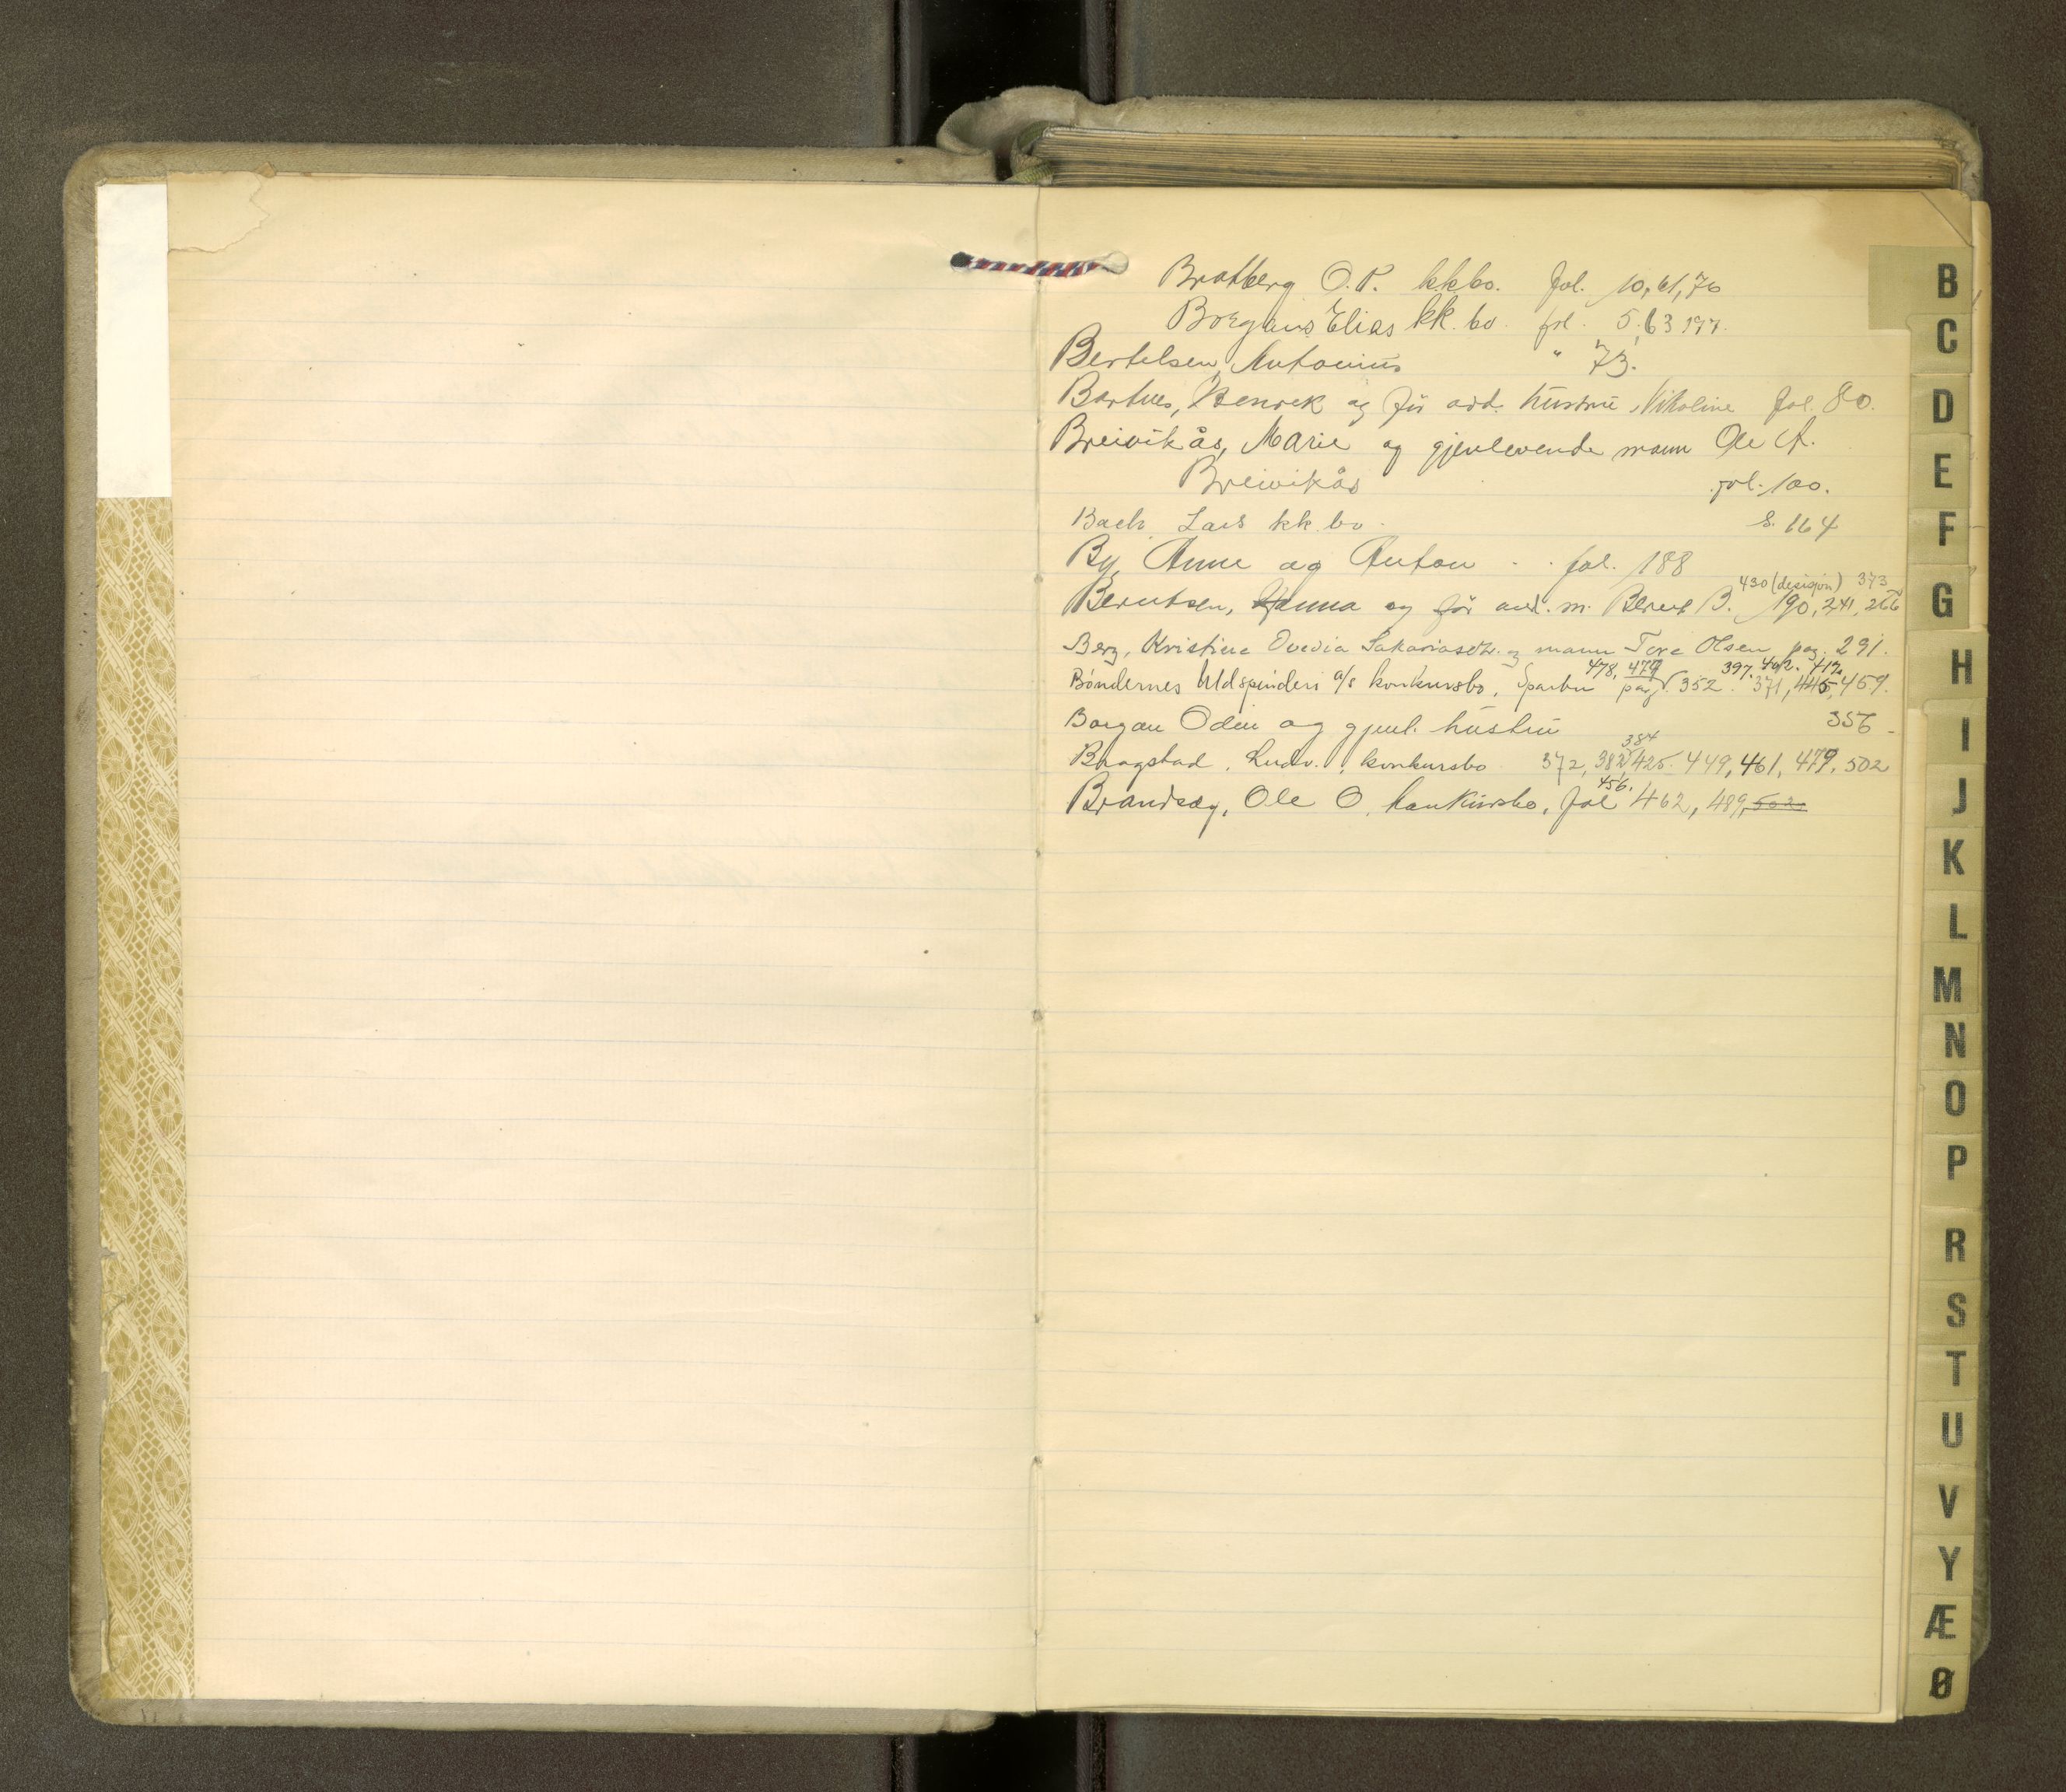 Bratberg O.P. kkbo. fol. 10, 61, 76
Borgans Elias kk. bo. fol. 5, 63 177.
Bertelsen, Antonius " 73.
Bartnes, Henrek og før avd. hustru, Nikoline fol. 80.
Breivikås, Marie og gjenlevende mann Ole A.
Breivikås fol. 100.
Bach, Lars kk. bo. s. 164
By, Anne og Anton . . fol. 188
430 (desisjon) 373
Berntsen, Hanna og før avd. m. Bernt B. 190, 241, 266
Berg, Kristine Ovedia Sakariasdtr. og mann Tore Olsen pag. 291.
478, 479 397, 402. 412.
Bøndernes Uldspinderi a/s konkursbo, Sparbu pag. 352. 371, 445, 459.
Borgan Odin og gjenl. hustru 356
384
Bragstad, Ludv. konkursbo 372, 382, 425. 449, 461, 479, 502
456.
Brandsæg, Ole O. konkursbo, fol 462, 489, 502
B
C
D
E
F
G
H
I
J
K
L
M
N
O
P
R
S
T
U
V
Y
Æ
Ø